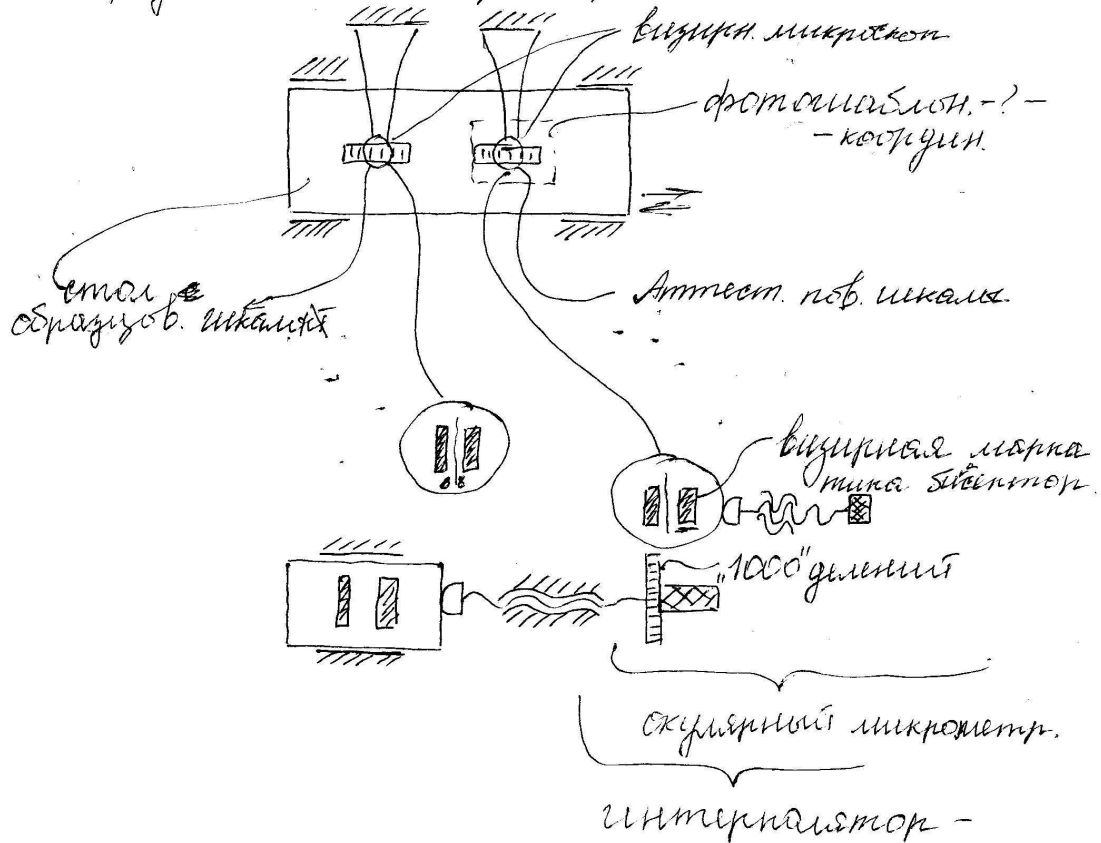 визирн. микроскоп
фотошаблон. -?-
- координ.
Аттест. пов. шкалы.
стол
образцов. шкалы
визирная марка
типа бисектор.
„1000" делений
окулярный микрометр.
интерполятор -